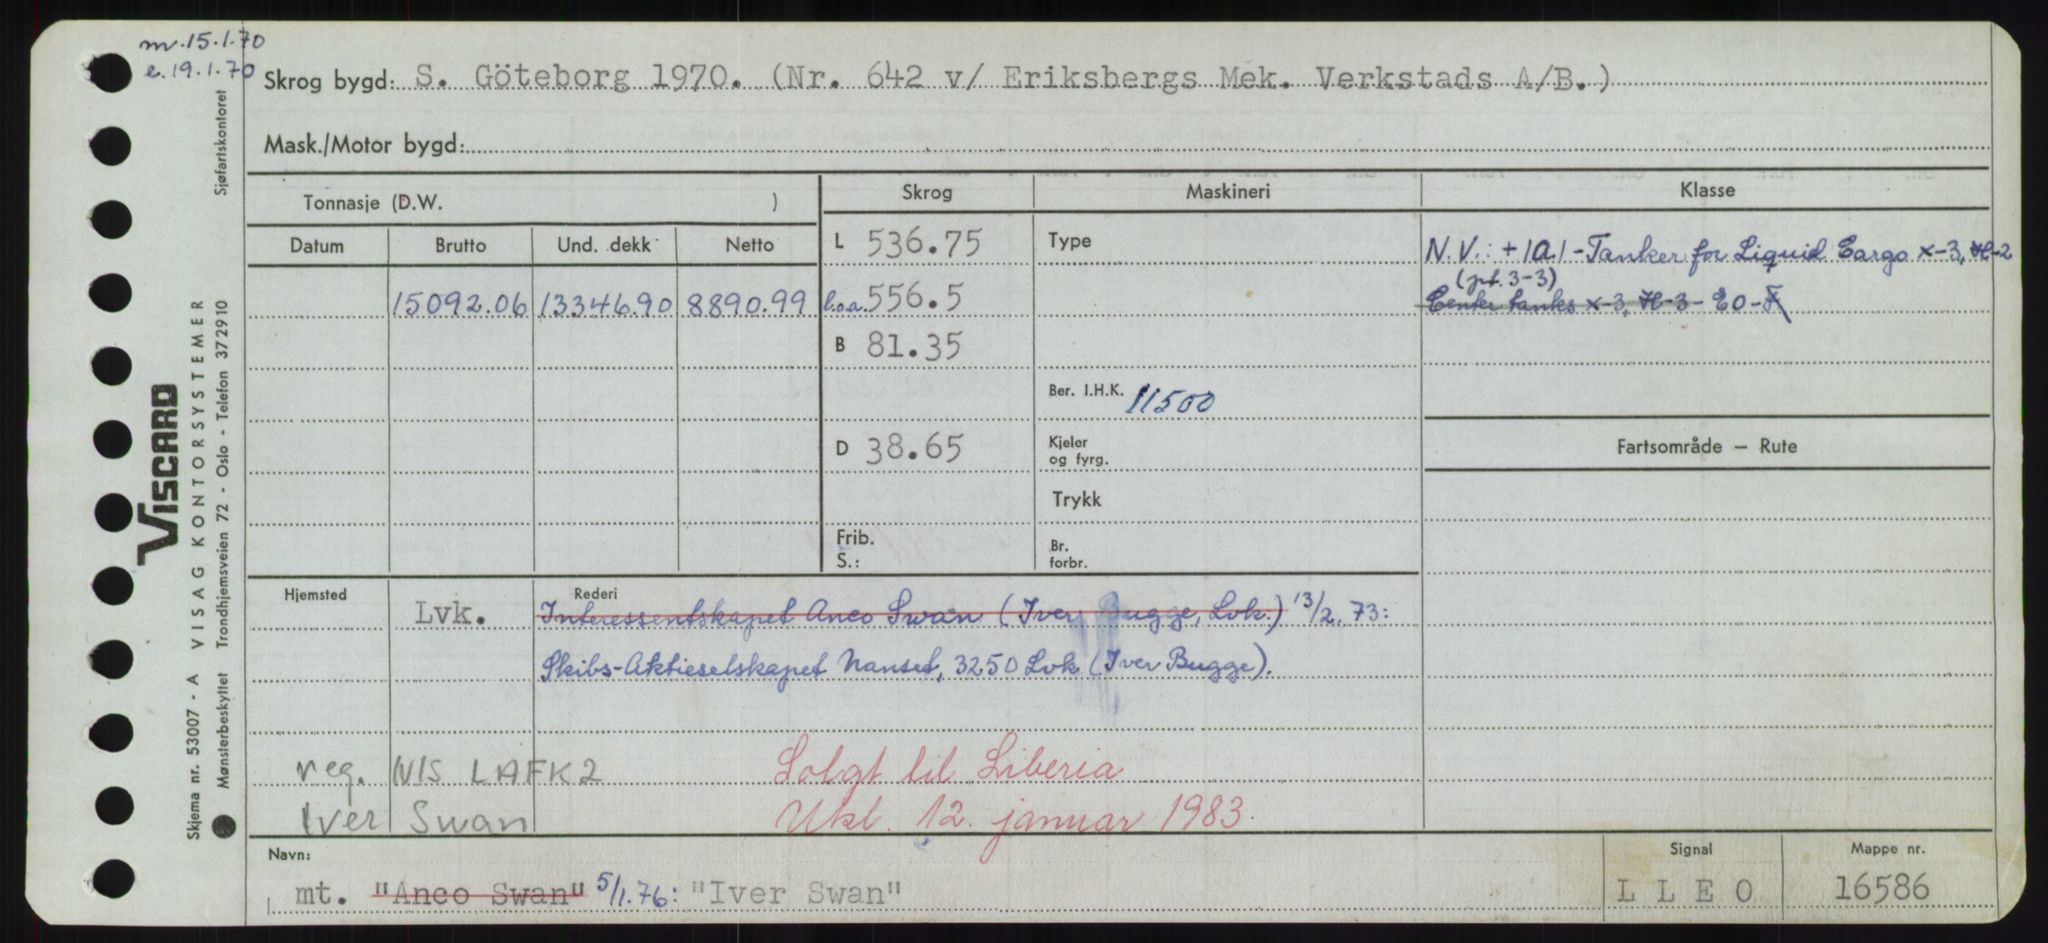 m. 15.1.70
e. 19.1.70
Skrog bygd: S. Göteborg 1970. (Nr. 642 v/ Eriksbergs Mek. Verkstads A/B.)
Mask./Motor bygd:
Tonnasje (D.W. )
Skrog Maskineri Klasse
Datum Brutto Und. dekk Netto
L 536.75 Type
N.V.: +1A1-Tanker for Liquid Cargo x-3, H-2
(pt. 3-3)
15092.06 13346.90 8890.99 l.o.a. 556.5
Center tanks x-3, H-3- E0-F
B 81.35
Ber. I.H.K. 11500
D 38.65 Kjeler og fyrg.
Fartsområde — Rute
Trykk
Frib. S.: Br. forbr.
Hjemsted Rederi
Lvk. Interessentskapet Anco Swan (Iver Bugge, Lvk.) 13/2.73:
Skibs-Aktieselskapet Nanset, 3250 Lvk (Iver Bugge).
reg. NIS LAFK2 Solgt til Liberia
Iver Swan Ukl. 12. januar 1983.
Navn: Signal Mappe nr.
mt. "Anco Swan" 5/1.76: "Iver Swan" L L E O 16586
VISCARD
Skjema nr. 53007 - A VISAG KONTORSYSTEMER
Mønsterbeskyttet Trondhjemsveien 72 - Oslo - Telefon 372910 Sjøfartskontoret